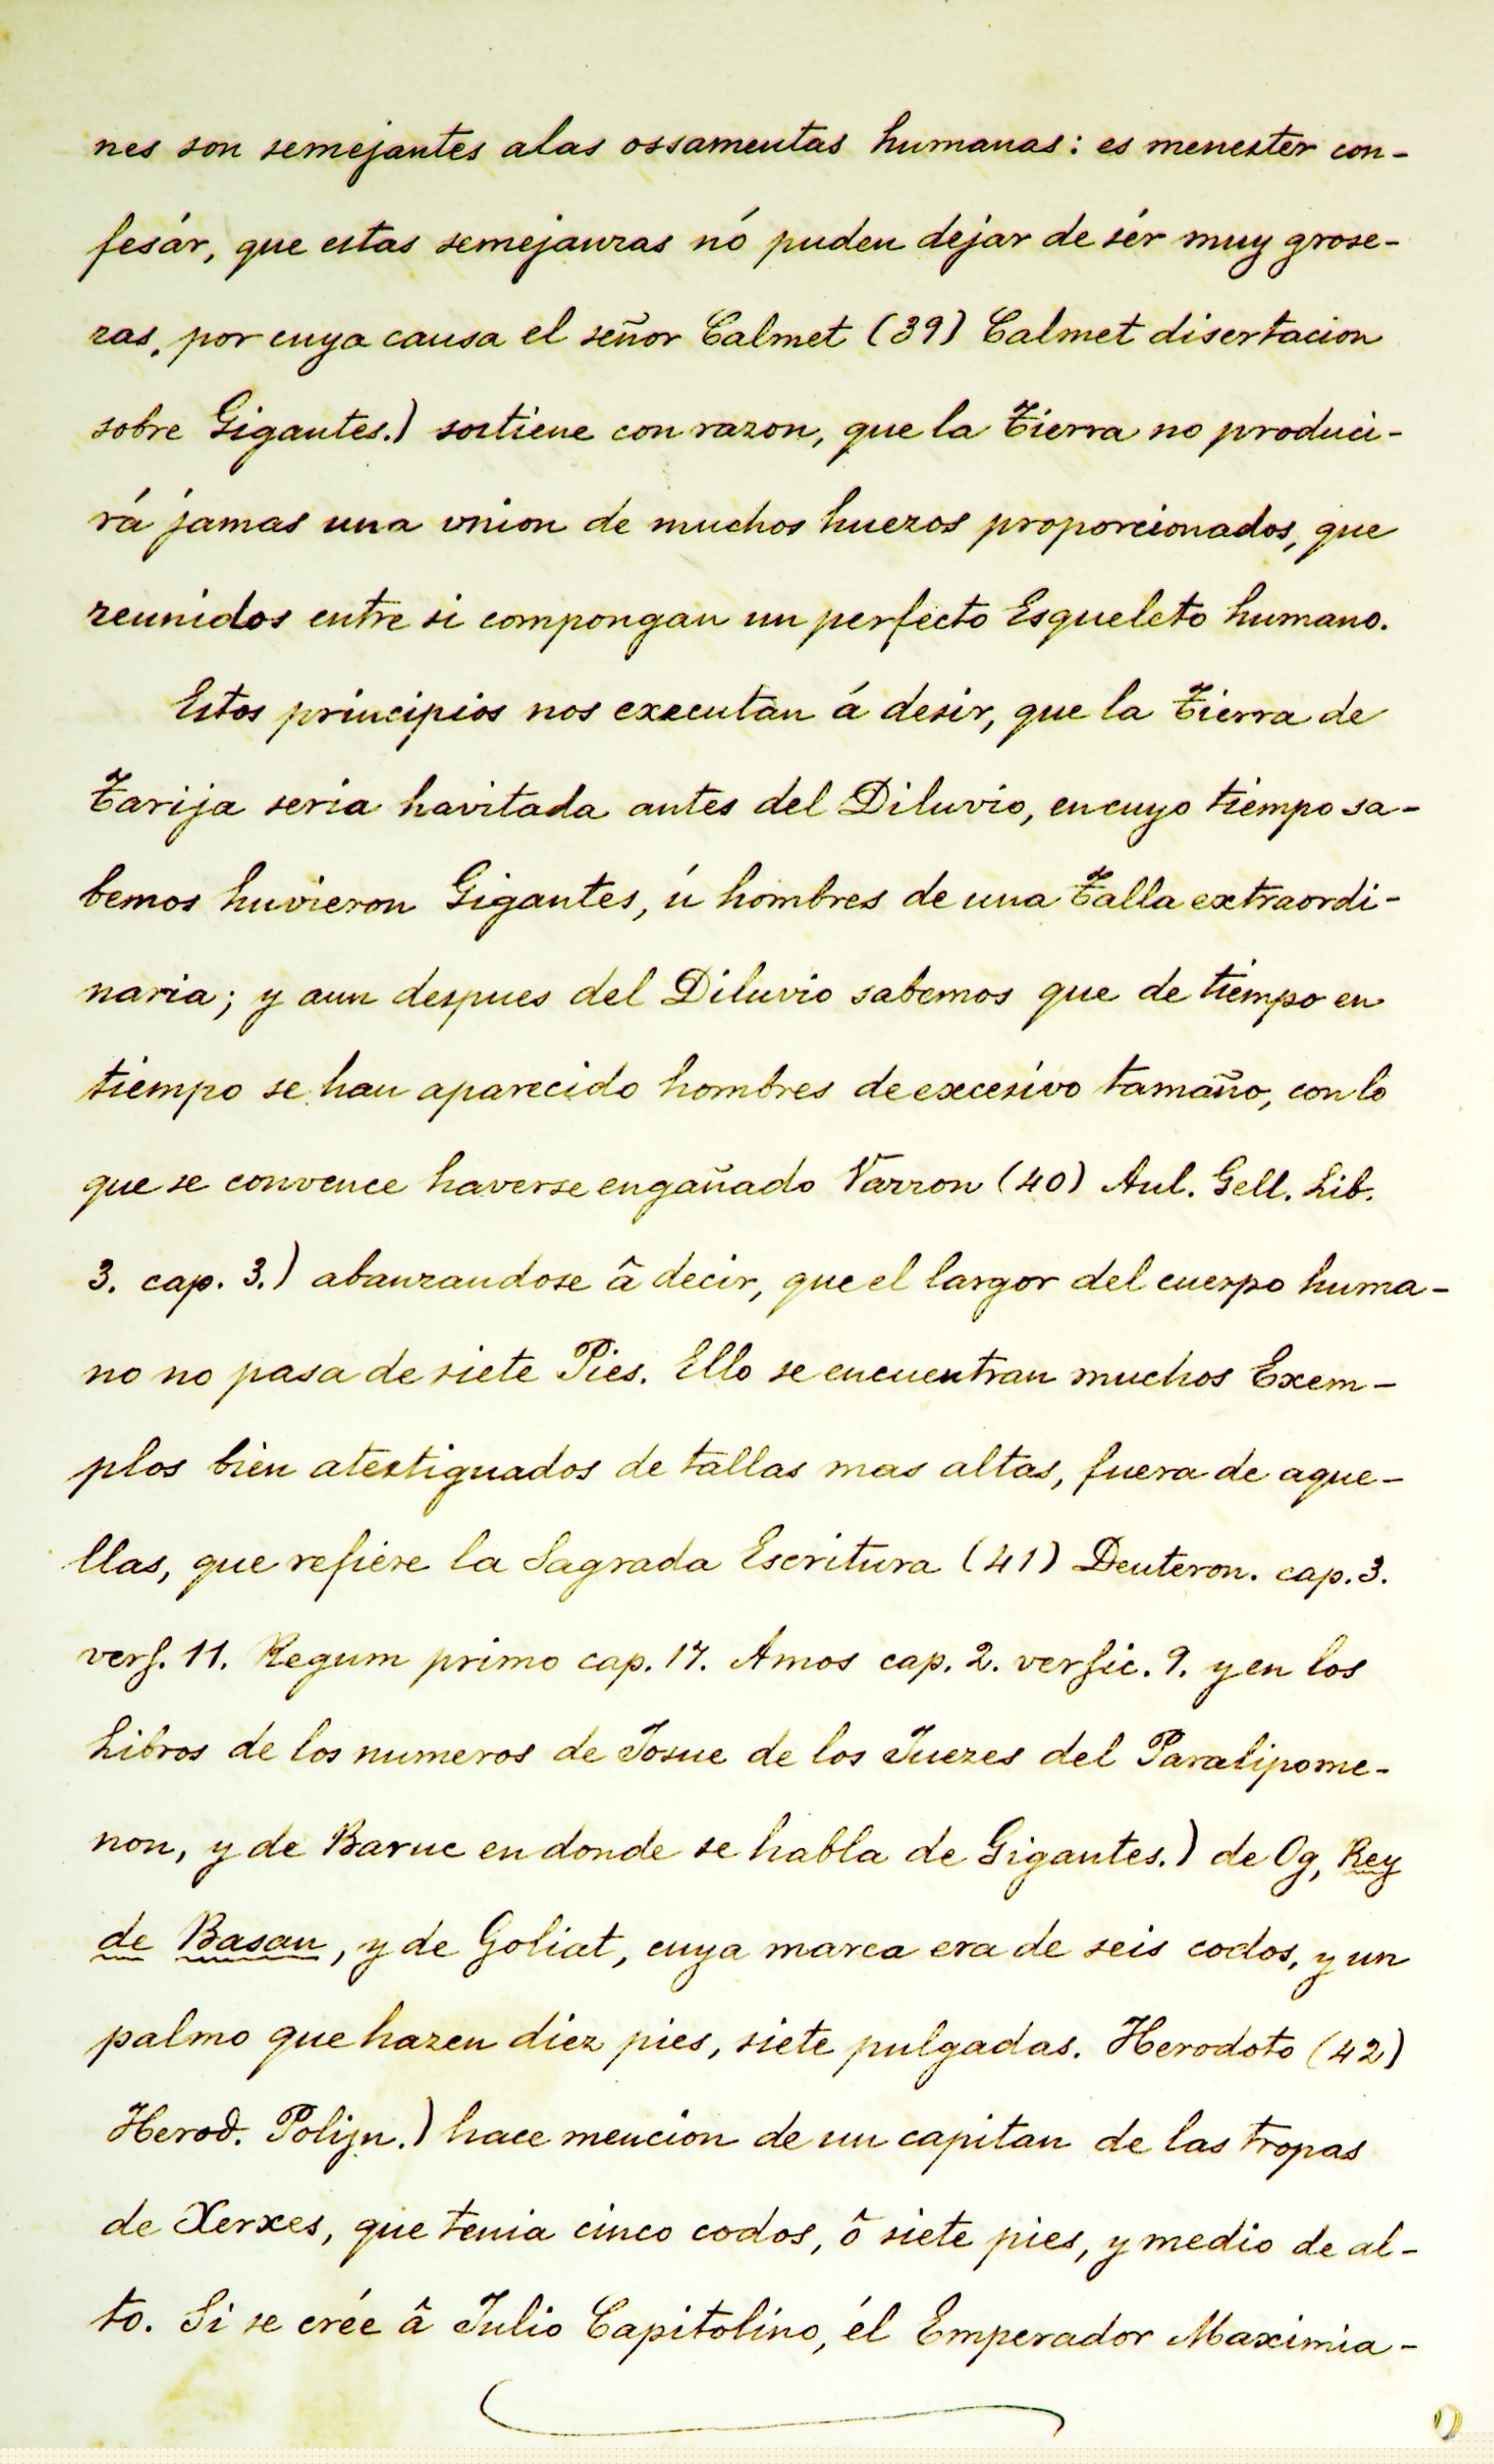 nes son semejantes alas ossamentas humanas: es menester con-
fesár, que estas semejanzas nó puden dejar de sér muy grose-
ras, por cuya causa el señor Calmet (39) Calmet disertacion
sobre Gigantes.) sostiene con razon, que la Tierra no produci-
rá jamas una vnion de muchos huezos proporcionados, que
reunidos entre si compongan un perfecto Esqueleto humano.
Estos principios nos executan á desir, que la Tierra de
Tarija seria havitada antes del Diluvio, en cuyo tiempo sa-
bemos huvieron Gigantes, ú hombres de una Talla extraordi-
naria; y aun despues del Diluvio sabemos que de tiempo en
tiempo se han aparecido hombres de excesivo tamaño, con lo
que se convence haverse engañado Varron (40) Aul. Gell. Lib.
3. cap. 3.) abanzandose â decir, que el largor del cuerpo huma-
no no pasa de siete Pies. Ello se encuentran muchos Exem-
plos bien atestiguados de tallas mas altas, fuera de aque-
llas, que refiere la Sagrada Escritura (41) Deuteron. cap. 3.
vers. 11. Regum primo cap. 17. Amos cap. 2. versic. 9. y en los
Libros de los numeros de Josue de los Juezes del Paralipome-
non, y de Baruc en donde se habla de Gigantes.) de Og, Rey
de Basan, y de Goliat, cuya marca era de seis codos, y un
palmo que hazen diez pies, siete pulgadas. Herodoto (42)
Herod. Polijn.) hace mencion de un capitan de las tropas
de Xerxes, que tenia cinco codos, ô siete pies, y medio de al-
to. Si se crée â Julio Capitolino, él Emperador Maximia-